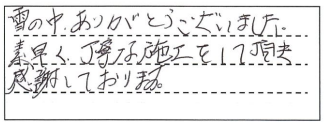 雪の中、ありがとうございました。
素早く、丁寧な施工をして頂き
感謝しております。